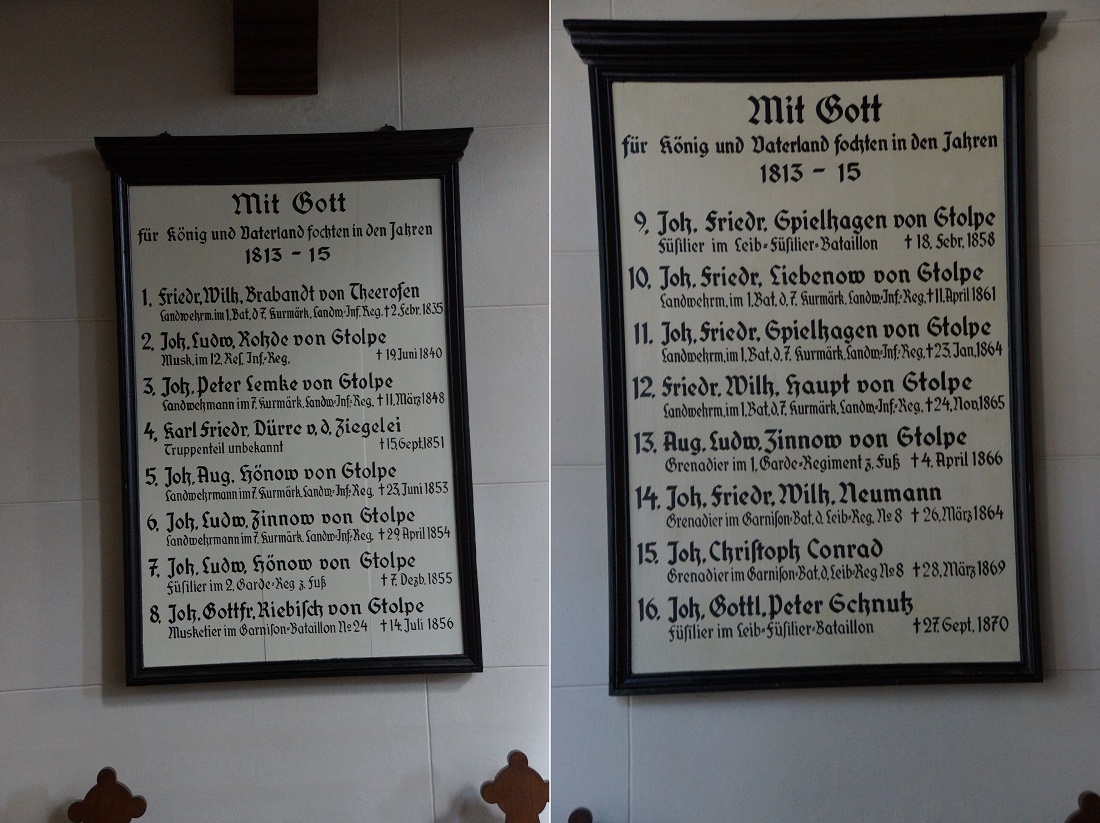 Mit Gott
für König und Vaterland fochten in den Jahren
1813 - 15
1. Friedr. Wilh. Brabandt von Theerofen
Landwehrm. im 1. Bat. d. 7. Kurmärk. Landw.-Inf.-Reg. † 2. Febr. 1835
2. Joh. Ludw. Rohde von Stolpe
Musk. im 12. Ref. Inf.-Reg. † 19. Juni 1840
3. Joh. Peter Lemke von Stolpe
Landwehmann im 7. Kurmärk. Landw.-Inf.-Reg. † 11. März 1848
4. Karl Friedr. Dürre v. d. Ziegelei
Truppenteil unbekannt † 15. Sept. 1851
5. Joh. Aug. Hönow von Stolpe
Landwehrmann im 7. Kurmärk. Landw.-Inf.-Reg. † 23. Juni 1853
6. Joh. Ludw. Zinnow von Stolpe
Landwehrmann im 7. Kurmärk. Landw.-Inf.-Reg. † 29. April 1854
7. Joh. Ludw. Hönow von Stolpe
Füsilier im 2. Garde-Reg z. Fuß † 7. Dezb. 1855
8. Joh. Gottfr. Riebisch von Stolpe
Musketier im Garnison-Bataillon No 24 † 14. Juli 1856
Mit Gott
für König und Vaterland fochten in den Jahren
1813 - 15
9. Joh. Friedr. Spielhagen von Stolpe
Füsilier im Leib-Füsilier-Bataillon † 18. Febr. 1858
10. Joh. Friedr. Liebenow von Stolpe
Landwehrm. im 1. Bat. d. 7. Kurmärk. Landw.-Inf.-Reg. † 11. April 1861
11. Joh. Friedr. Spielhagen von Stolpe
Landwehrm. im 1. Bat. d. 7. Kurmärk. Landw.-Inf.-Reg. † 23. Jan. 1864
12. Friedr. Wilh. Haupt von Stolpe
Landwehrm. im 1. Bat. d. 7. Kurmärk. Landw.-Inf.-Reg. † 24. Nov. 1865
13. Aug. Ludw. Zinnow von Stolpe
Grenadier im 1. Garde-Regiment z. Fuß † 4. April 1866
14. Joh. Friedr. Wilh. Neumann
Grenadier im Garnison-Bat. d. Leib-Reg. No 8 † 26. März 1864
15. Joh. Christoph Conrad
Grenadier im Garnison-Bat. d. Leib-Reg No 8 † 28. März 1869
16. Joh. Gottl. Peter Schnutz
Füsilier im Leib-Füsilier-Bataillon † 27. Sept. 1870